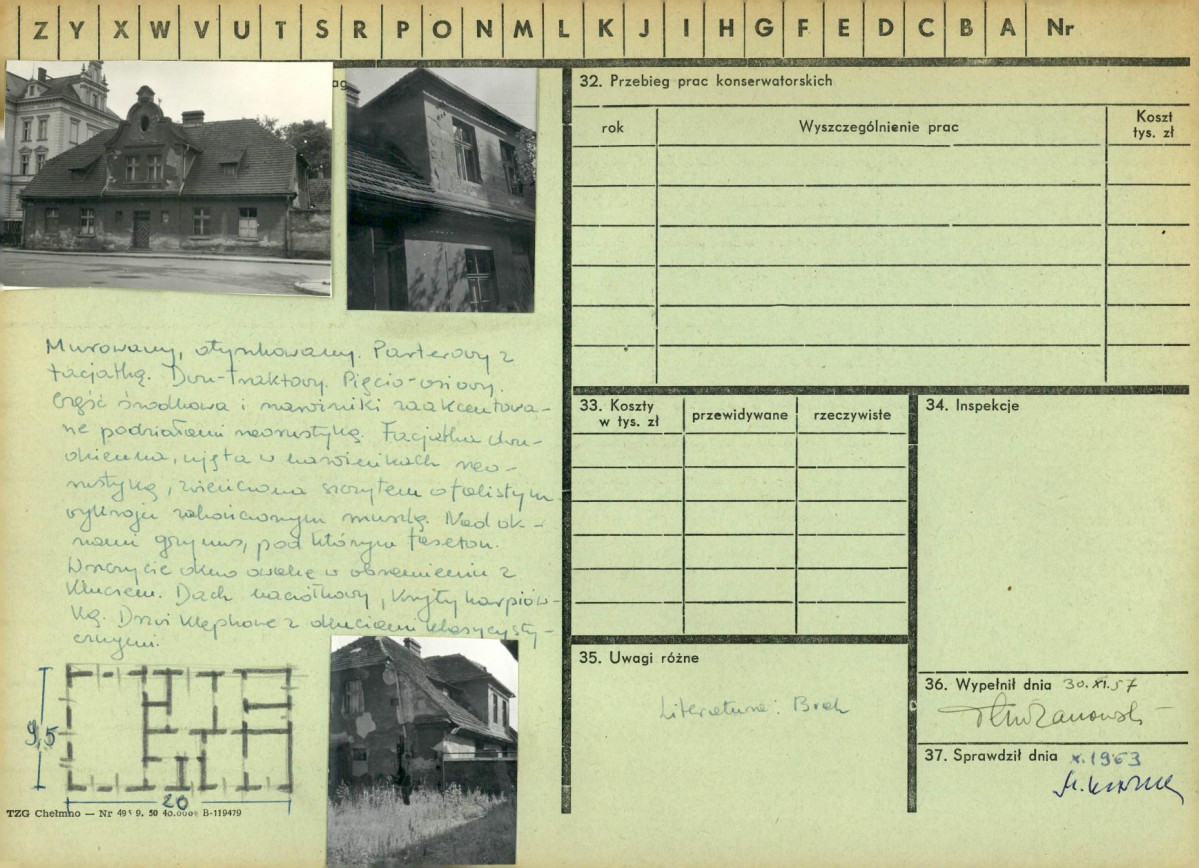 Z Y X W V U T S R P O N M L K J I H G F E D C B A Nr
ag
Murowany, otynkowany. Parterowy z
facjatką. Dwu-traktowy. Pięcio-osiowy.
Część środkowa i narożniki zaakcentowa-
ne podziałami neorustyką. Facjatka dwu-
okienna, ujęta w narożnikach neo-
rustyką, zwieńczona szczytem o falistym
wykroju zakończonym muszlą. Nad ok-
nami gzyms, pod którym feseton.
W szczycie okno owalne w obramieniu z
kluczem. Dach naczółkowy, kryty karpiów-
ką. Drzwi klepkowe z okuciami klasycysty-
cznymi.
9,5
20
TZG Chełmno — Nr 49 9. 50 40.000 B-119479
32. Przebieg prac konserwatorskich
rok Wyszczególnienie prac Koszt tys. zł
33. Koszty w tys. zł przewidywane rzeczywiste
34. Inspekcje
35. Uwagi różne
Literatura: Brak
36. Wypełnił dnia 30.XI.57
37. Sprawdził dnia X.1963